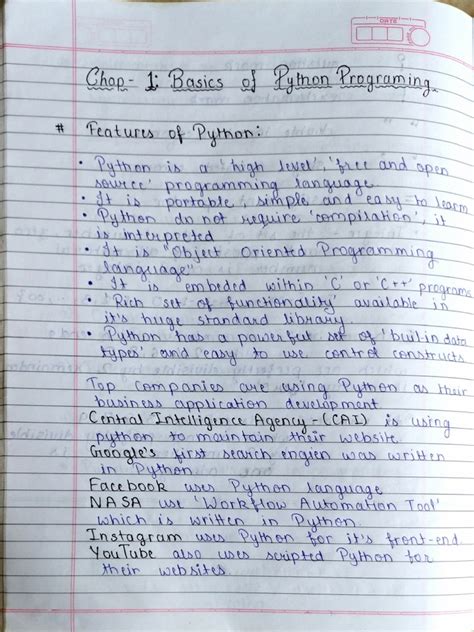 DATE
Chap- 1: Basics of Python Programing
# Features of Python:
• Python is a 'high level', 'free and open
source' programming language.
• It is portable, simple and easy to learn
• Python do not require 'compilation', it
is interpreted
• It is "Object Oriented Programming
language"
• It is embeded within 'C' or 'C++' programs
• Rich set of functionality available in
it's huge standard library.
• Python has a powerful set of 'built-in data
types' and easy to use control constructs
Top companies are using Python as their
business application development.
Central Intelligence Agency - (CAI) is using
python to maintain their website.
Google's first search engien was written
in Python.
Facebook uses Python language
NASA use 'Workflow Automation Tool'
which is written in Python.
Instagram uses Python for it's front-end.
YouTube also uses scripted Python for
their websites.